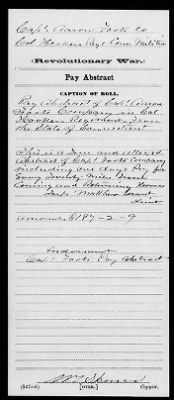 Capt Aaron Foots Co
Col Hookers Regt Con Militia
Revolutionary War.
Pay Abstract
CAPTION OF ROLL.
Pay Abstract of Capt Aaron
Foots Company in Col
Hookers Regiment from
the State of Connecticut
This is a true and
abstract of Capt Foots Company
including one days Pay for
every Twenty Miles Travel
Coming and Returning Home
Test Matthew Grant
Lieut
amount £187-2-9
Indorsement
Capt Foots Pay Abstract
(572c)
[OVER.]
Copyist.